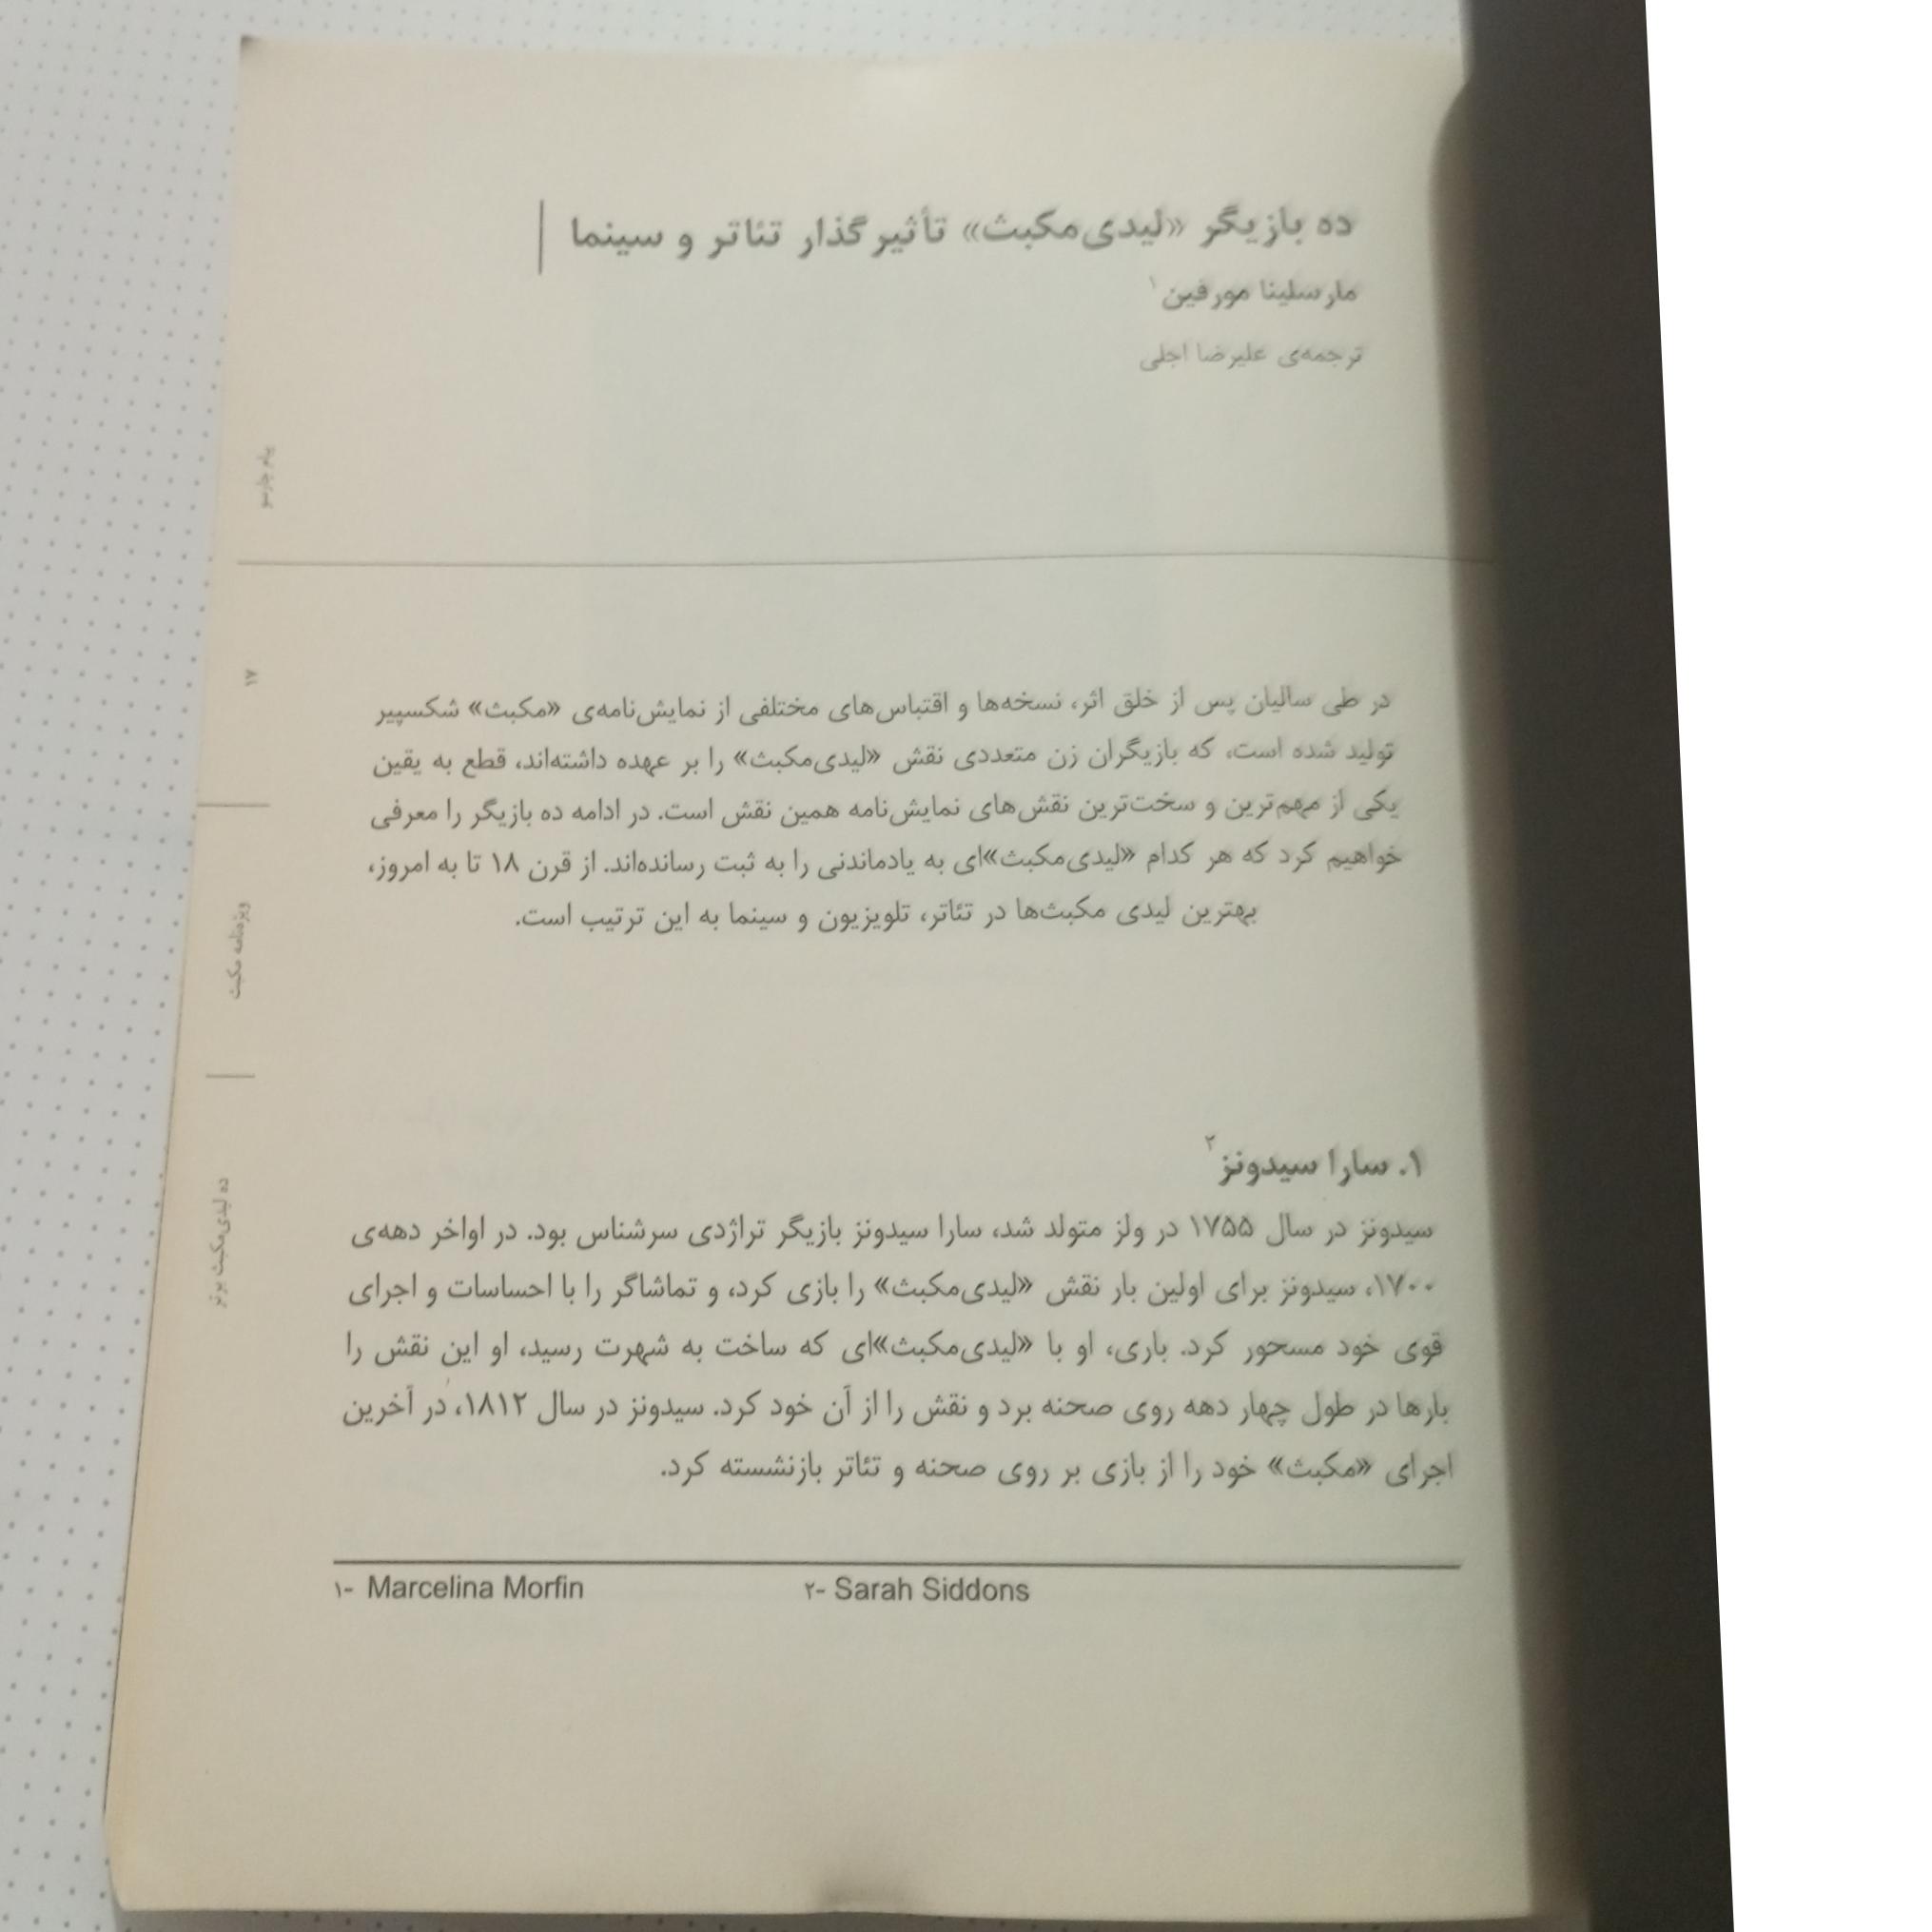 ده بازیگر «لیدی‌مکبث» تأثیرگذار تئاتر و سینما
مارسلینا مورفین۱
ترجمه‌ی علیرضا اجلی
پیام چارسو
۱۷
ویژه‌نامه مکبث
ده لیدی‌مکبث برتر
در طی سالیان پس از خلق اثر، نسخه‌ها و اقتباس‌های مختلفی از نمایش‌نامه‌ی «مکبث» شکسپیر
تولید شده است، که بازیگران زن متعددی نقش «لیدی‌مکبث» را بر عهده داشته‌اند، قطع به یقین
یکی از مهم‌ترین و سخت‌ترین نقش‌های نمایش‌نامه همین نقش است. در ادامه ده بازیگر را معرفی
خواهیم کرد که هر کدام «لیدی‌مکبث»ای به یادماندنی را به ثبت رسانده‌اند. از قرن ۱۸ تا به امروز،
بهترین لیدی مکبث‌ها در تئاتر، تلویزیون و سینما به این ترتیب است.
۱. سارا سیدونز۲
سیدونز در سال ۱۷۵۵ در ولز متولد شد، سارا سیدونز بازیگر تراژدی سرشناس بود. در اواخر دهه‌ی
۱۷۰۰، سیدونز برای اولین بار نقش «لیدی‌مکبث» را بازی کرد، و تماشاگر را با احساسات و اجرای
قوی خود مسحور کرد. باری، او با «لیدی‌مکبث»ای که ساخت به شهرت رسید، او این نقش را
بارها در طول چهار دهه روی صحنه برد و نقش را از آن خود کرد. سیدونز در سال ۱۸۱۲، در آخرین
اجرای «مکبث» خود را از بازی بر روی صحنه و تئاتر بازنشسته کرد.
۱- Marcelina Morfin
۲- Sarah Siddons